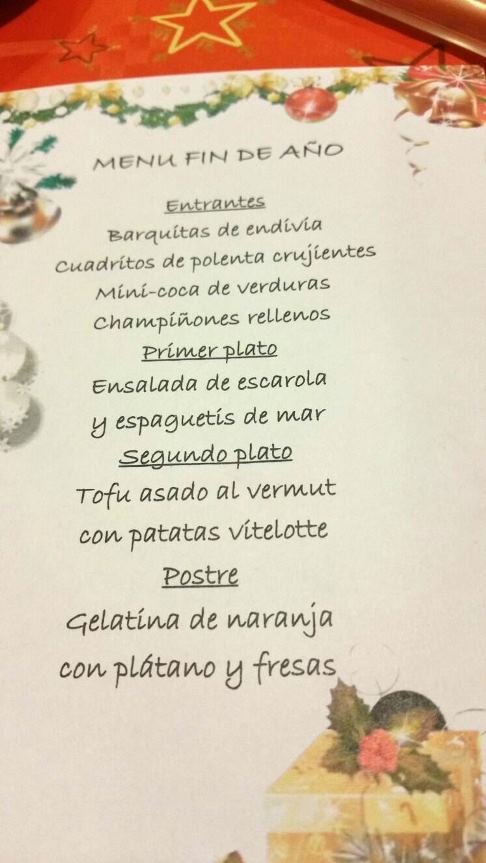 MENU FIN DE AÑO
Entrantes
Barquitas de endivia
Cuadritos de polenta crujientes
Mini-coca de verduras
Champiñones rellenos
Primer plato
Ensalada de escarola
y espaguetis de mar
Segundo plato
Tofu asado al vermut
con patatas vitelotte
Postre
Gelatina de naranja
con plátano y fresas